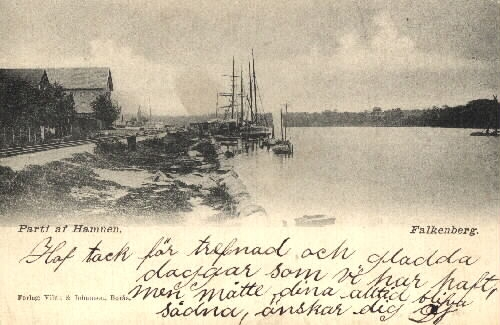 Parti af Hamnen.
Falkenberg.
Haf tack för trefnad och gladda
daggar som vi har haft,
men måtte dina alltid blifva
sådna, önskar dig
Förlag: & Johnsson, Borås.